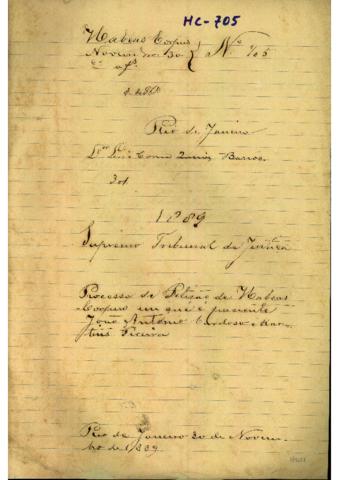 HC-705
Habeas Corpus
Novem no 30 } Nº 705
Rio de Janeiro
Barros.
301
1889
Supremo Tribunal de Justiça
Processo de Petição de Habeas
Corpus em que é paciente
João Antonio Cardoso e Mar-
tins Pereira
Rio de Janeiro 30 de Novem-
bro de 1889.